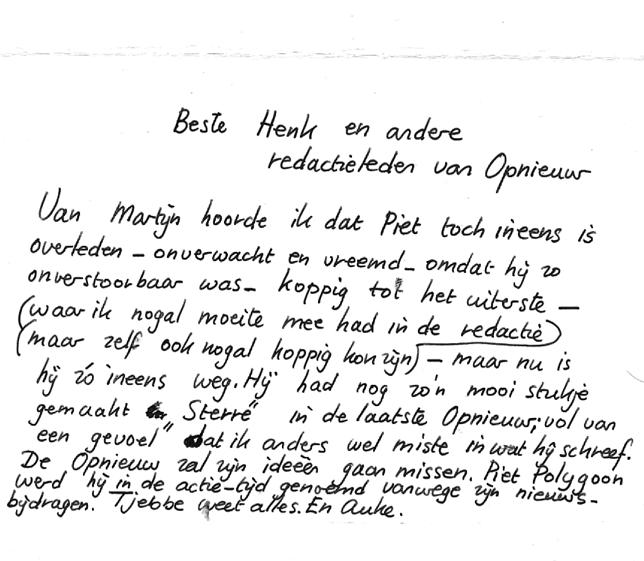 Beste Henk en andere
redactieleden van Opnieuw
Van Martijn hoorde ik dat Piet toch ineens is
overleden - onverwacht en vreemd - omdat hij zo
onverstoorbaar was - koppig tot het uiterste -
(waar ik nogal moeite mee had in de redactie)
(maar zelf ook nogal koppig kon zijn) - maar nu is
hij zó ineens weg. Hij had nog zo'n mooi stukje
gemaakt "Sterre" in de laatste Opnieuw; vol van
een gevoel dat ik anders wel miste in wat hij schreef.
De Opnieuw zal zijn ideeën gaan missen. Piet Polygoon
werd hij in de actie-tijd genoemd vanwege zijn nieuws-
bijdragen. Tjebbe weet alles. En Auke.